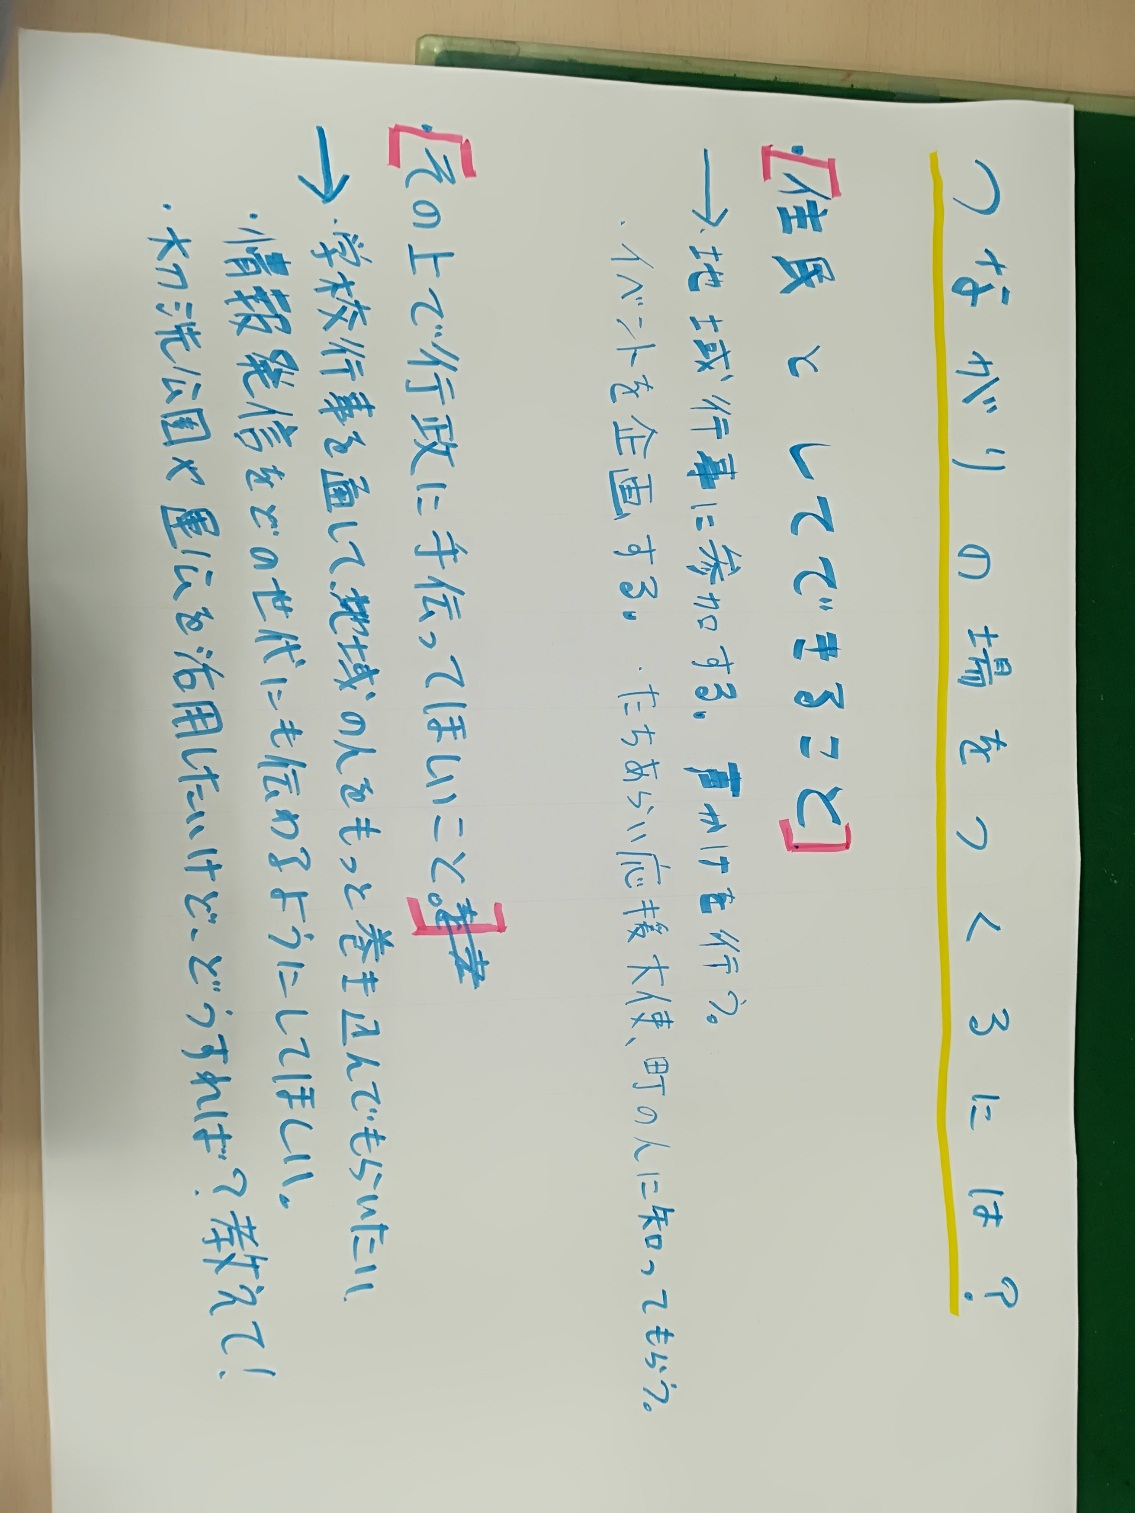 つながりの場をつくるには?
・[住民としてできること]
→・地域行事に参加する。声かけを行う。
・イベントを企画する。・たちあらい応援大使、町の人に知ってもらう。
・[その上で行政に手伝ってほしいこと。]
→・学校行事を通して、地域の人をもっと巻き込んでもらいたい。
・情報発信をどの世代にも伝わるようにしてほしい。
・大刀洗公園や 公を活用したいけど、どうすれば?教えて!